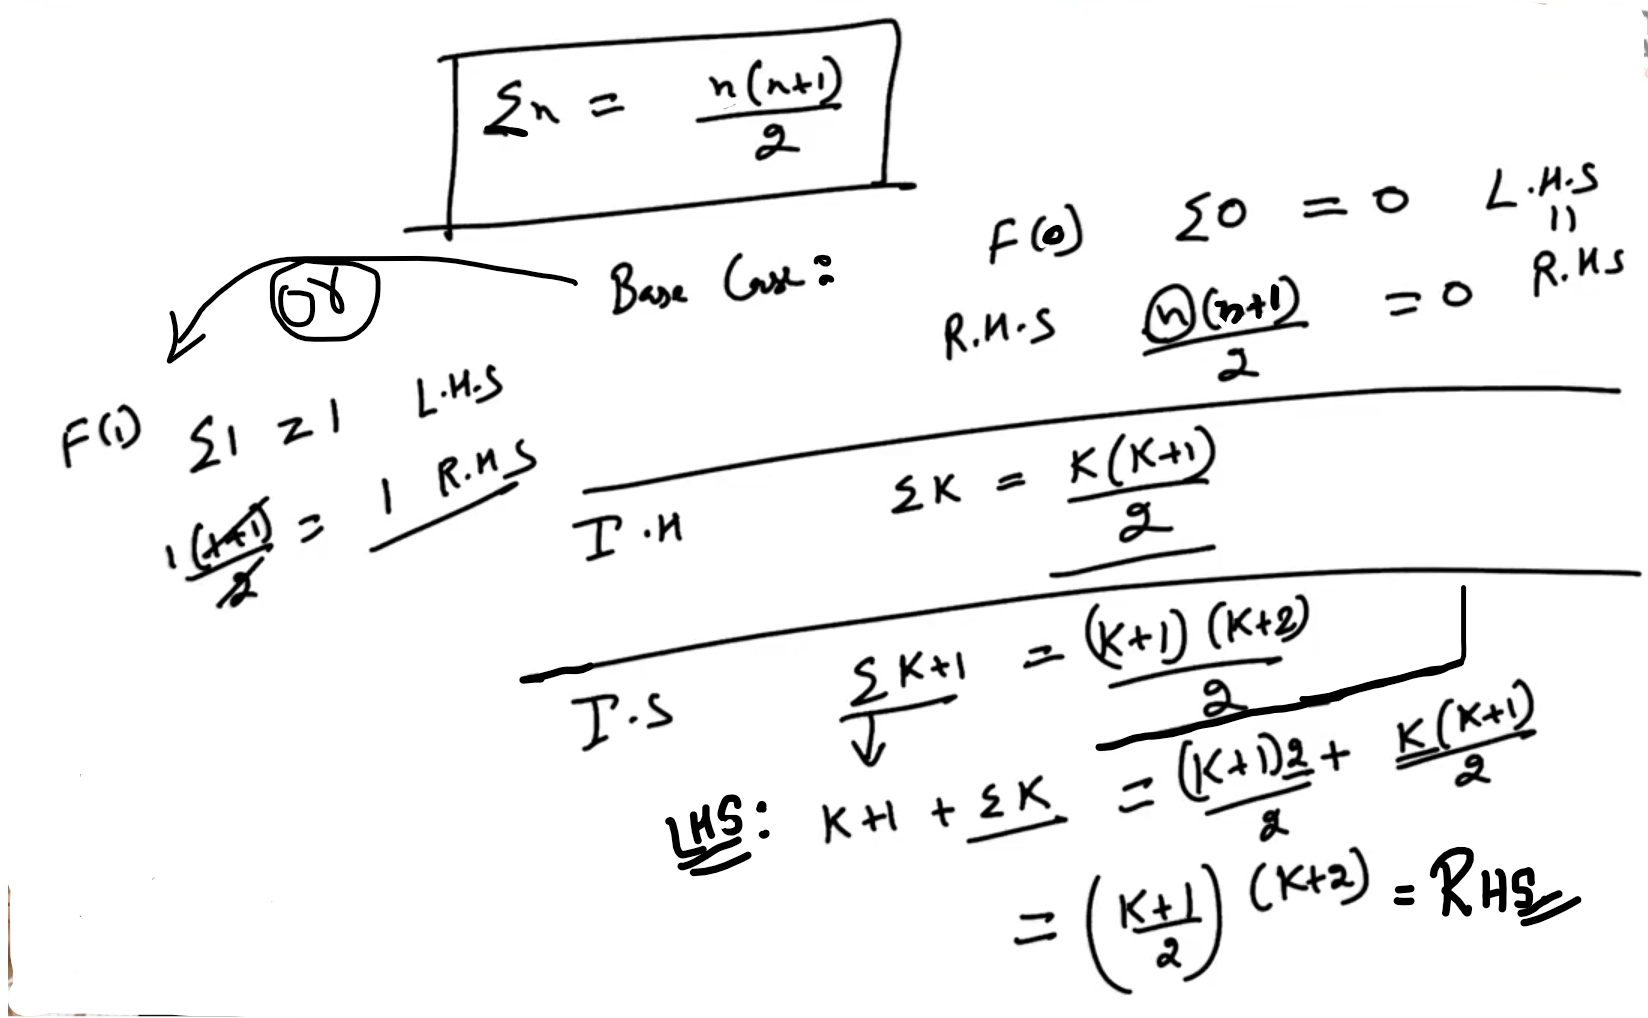 Σn = n(n+1)/2
Base Case:
F(0) Σ0 = 0 L.H.S
||
R.H.S n(n+1)/2 = 0 R.H.S
or
F(1) Σ1 = 1 L.H.S
1(1+1)/2 = 1 R.H.S
I.H ΣK = K(K+1)/2
I.S ΣK+1 = (K+1)(K+2)/2
LHS: K+1 + ΣK = (K+1)2/2 + K(K+1)/2
= (K+1/2)(K+2) = RHS